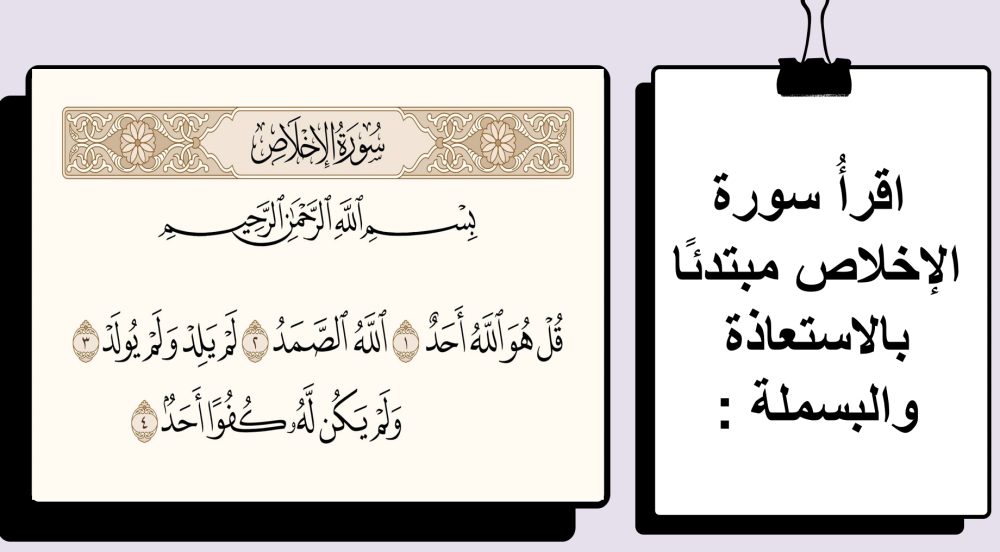 اقرأُ سورة
الإخلاص مبتدئًا
بالاستعاذة
والبسملة :
سُورَةُ الإِخْلَاصِ
بِسْمِ ٱللَّهِ ٱلرَّحْمَٰنِ ٱلرَّحِيمِ
قُلْ هُوَ ٱللَّهُ أَحَدٌ ١ ٱللَّهُ ٱلصَّمَدُ ٢ لَمْ يَلِدْ وَلَمْ يُولَدْ ٣
وَلَمْ يَكُن لَّهُۥ كُفُوًا أَحَدٌۢ ٤